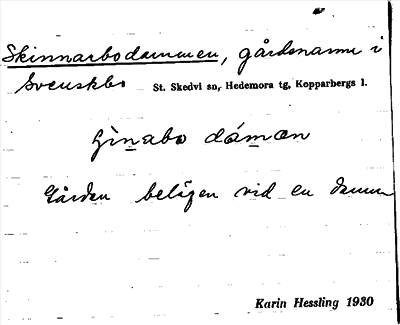 Skinnarbodammen, gårdsnamn i
Svenskbo St. Skedvi sn, Hedemora tg, Kopparbergs l.
dámən
Gården belägen vid en damm
Karin Hessling 1930